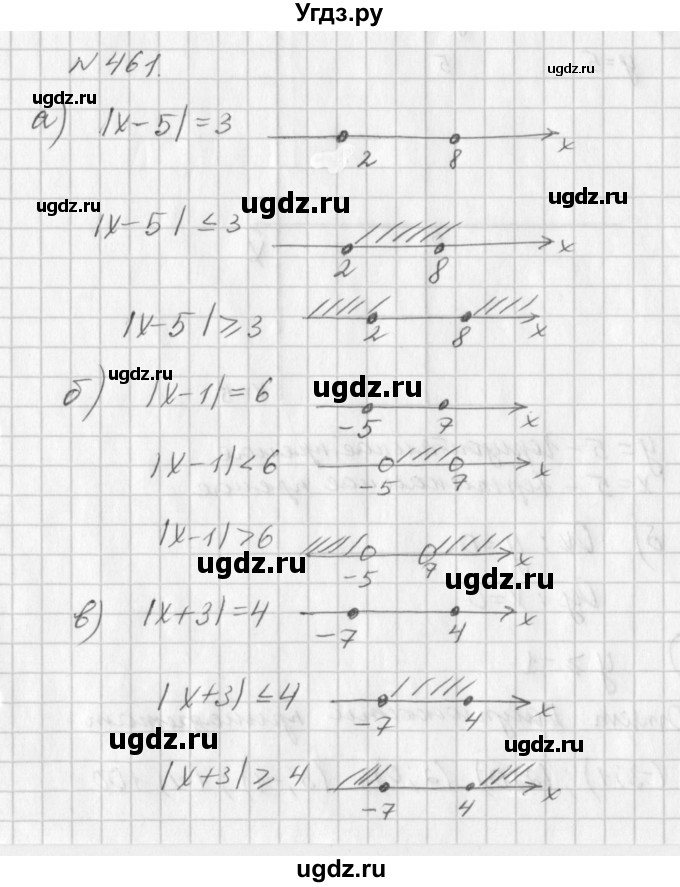 Угдз.ру
№461.
ugdz.ru
ugdz.ru
а) |x-5|=3
2 8 x
ugdz.ru
ugdz.ru
ugdz.ru
|x-5| ≤ 3
2 8 x
|x-5| ≥ 3
2 8 x
ugdz.ru
ugdz.ru
б) |x-1|=6
-5 7 x
|x-1|<6
-5 7 x
|x-1|>6
-5 7 x
ugdz.ru
ugdz.ru
в) |x+3|=4
-7 4 x
|x+3| ≤ 4
-7 4 x
ugdz.ru
ugdz.ru
|x+3| ≥ 4
-7 4 x
ugdz.ru